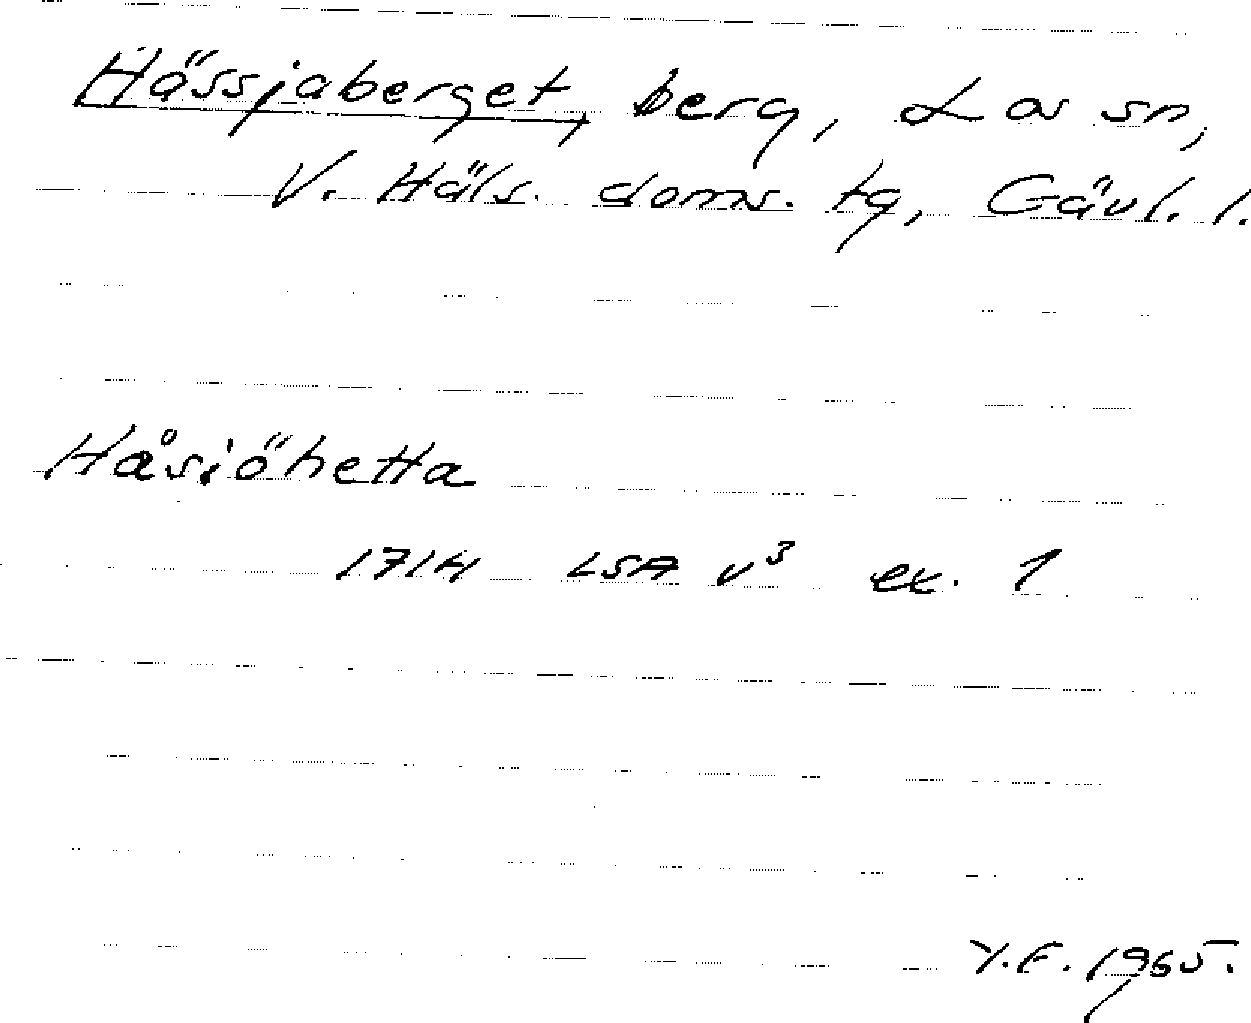 Hässjaberget, berg, Los sn,
V. Häls. doms. tg, Gävl. l.
Håsiöhetta
1714 LSA v³ ex. 1
Y.F. 1965.